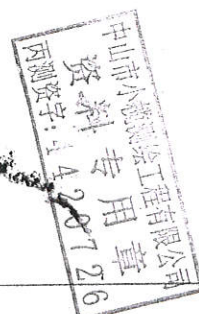 中山市小榄测绘工程有限公司
资料专用章
丙测资字:44207726